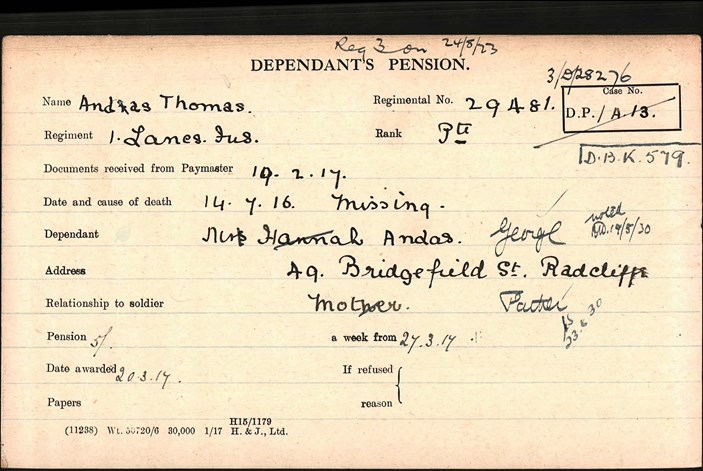 Reg 3 on 24/8/23
DEPENDANT'S PENSION.
3/D/28276
Name Andras Thomas. Regimental No. 29481. Case No.
D.P./A.13.
Regiment 1. Lancs. Fus. Rank Pte
D.B.K. 579.
Documents received from Paymaster 19.2.17.
Date and cause of death 14.7.16. Missing.
Dependant Mrs Hannah Andas. George noted 19/5/30
Address 49. Bridgefield St. Radcliffe
Relationship to soldier Mother. Father
23.5.30
Pension 5/ a week from 27.3.17
Date awarded 20.3.17. If refused
Papers reason
(11238) Wt. 50720/6 30,000 1/17 H15/1179 H. & J., Ltd.